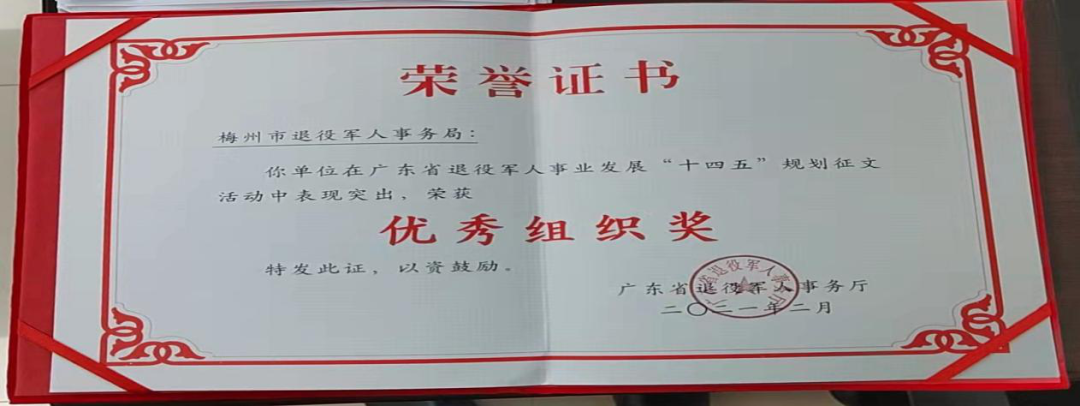 荣誉证书
梅州市退役军人事务局：
你单位在广东省退役军人事业发展“十四五”规划征文
活动中表现突出，荣获
优秀组织奖
特发此证，以资鼓励。
广东省退役军人事务厅
二〇二一年二月